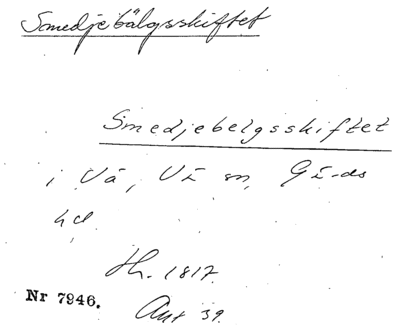 Smedjebälgsskiftet
Smedjebelgsskiftet
i Vä, Vä sn, Gä-ds
hd.
Hh. 1817.
Nr 7946.
Akt 39.